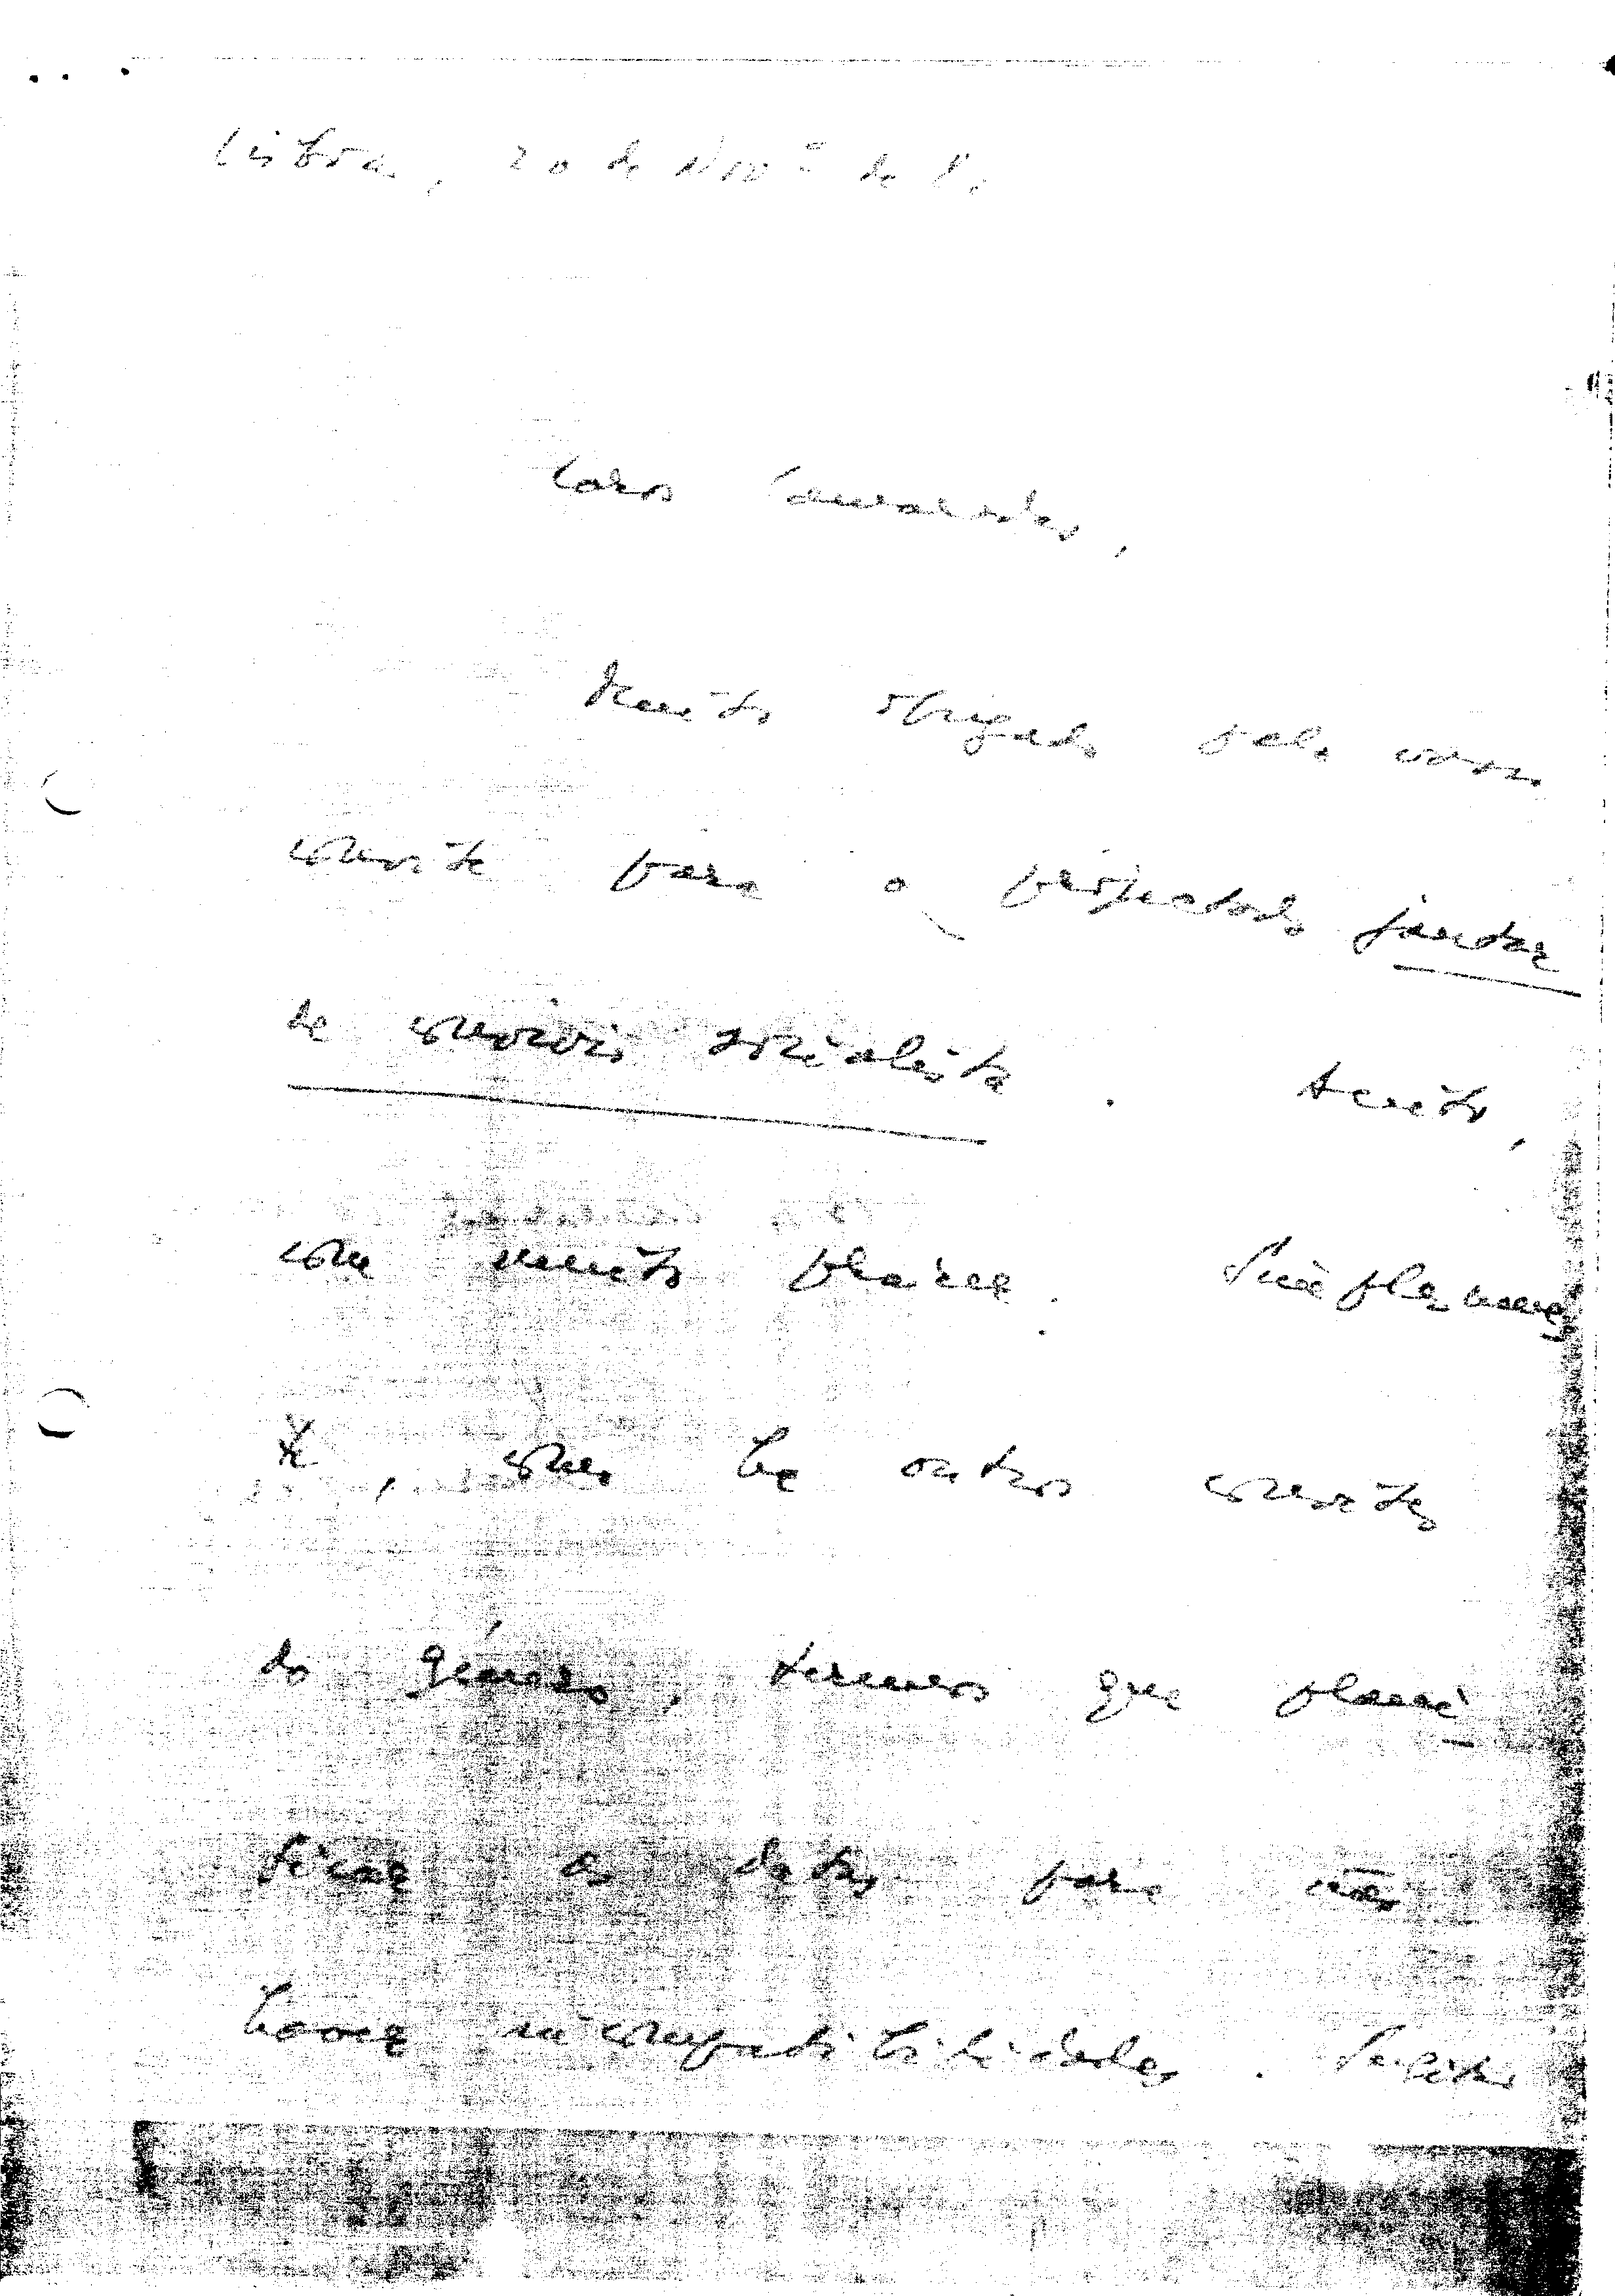 Lisboa, 20 de Nov.º de
Caros Camaradas,
Muito obrigado pelo vosso
convite para o projectado jantar
de convívio socialista. Aceito,
com muito prazer. Simplesmen
te, como há outros convites
do género, teremos que plani-
ficar as datas para não
haver incompatibilidades.